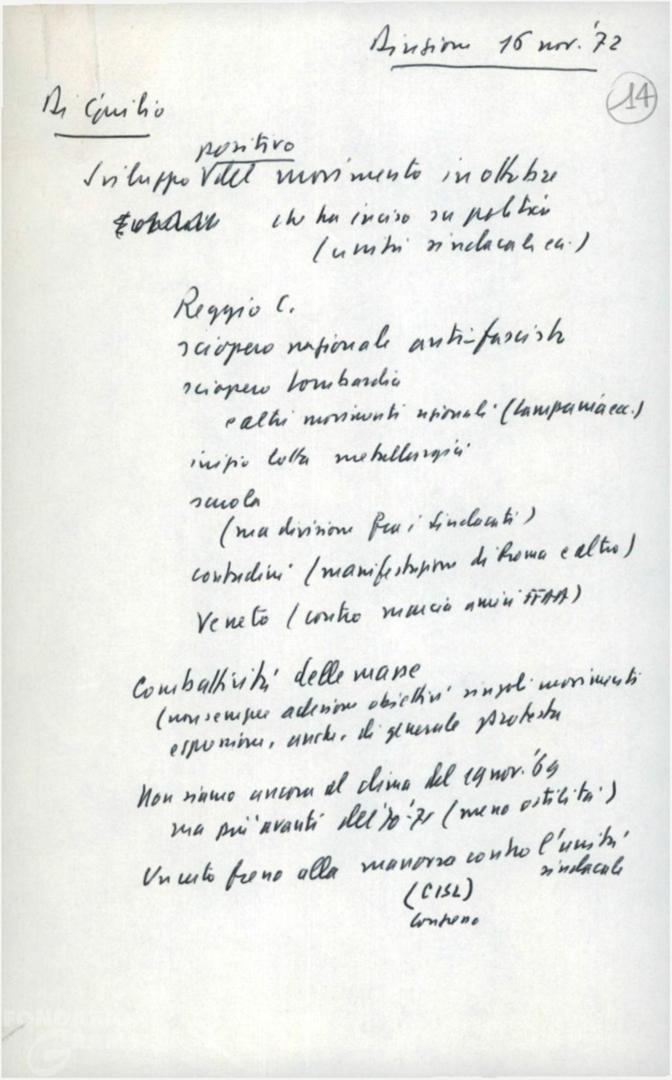 Direzione 16 nov. '72
14
Di Giulio
positivo
Sviluppo V del movimento in ottobre
che ha inciso su politica
(unità sindacale ecc.)
Reggio C.
sciopero nazionale antifascista
sciopero Lombardia
e altri movimenti regionali (Campania ecc.)
inizio lotta metallurgici
scuola
(ma divisione fra i sindacati)
contadini (manifestazione di Roma e altro)
Veneto (contro marcia amici FFAA)
Combattività delle masse
(non sempre adesione obiettivi singoli movimenti
espressione, anche, di generale protesta
Non siamo ancora al clima del 19 nov. '69
ma più avanti del '70-'71 (meno ostilità)
Un certo freno alla manovra contro l'unità
sindacale
(CISL)